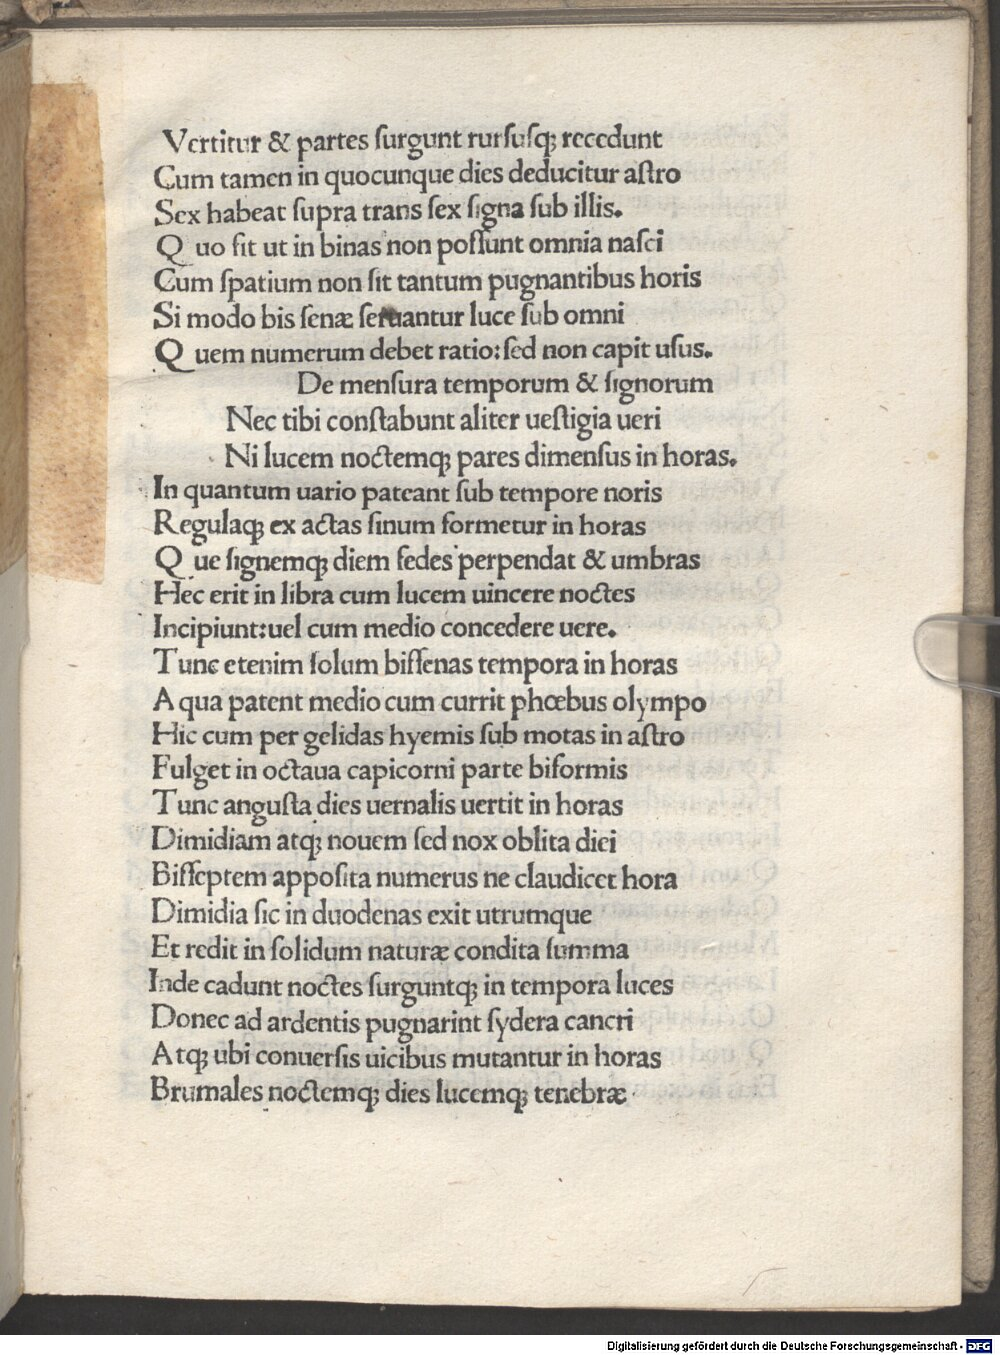 Vertitur & partes ſurgunt rurſuſqꝫ recedunt
Cum tamen in quocunque dies deducitur aſtro
Sex habeat ſupra trans ſex ſigna ſub illis.
Quo ſit ut in binas non poſſunt omnia naſci
Cum ſpatium non ſit tantum pugnantibus horis
Si modo bis ſenæ ſeruantur luce ſub omni
Quem numerum debet ratio: ſed non capit uſus.
De menſura temporum & ſignorum
Nec tibi conſtabunt aliter ueſtigia ueri
Ni lucem noctemqꝫ pares dimenſus in horas.
In quantum uario pateant ſub tempore noris
Regulaqꝫ ex actas ſinum formetur in horas
Que ſignemqꝫ diem ſedes perpendat & umbras
Hec erit in libra cum lucem uincere noctes
Incipiunt: uel cum medio concedere uere.
Tunc etenim ſolum biſſenas tempora in horas
A qua patent medio cum currit phœbus olympo
Hic cum per gelidas hyemis ſub motas in aſtro
Fulget in octaua capicorni parte biformis
Tunc anguſta dies uernalis uertit in horas
Dimidiam atqꝫ nouem ſed nox oblita diei
Biſſeptem appoſita numerus ne claudicet hora
Dimidia ſic in duodenas exit utrumque
Et redit in ſolidum naturæ condita ſumma
Inde cadunt noctes ſurguntqꝫ in tempora luces
Donec ad ardentis pugnarint ſydera cancri
Atqꝫ ubi conuerſis uicibus mutantur in horas
Brumales noctemqꝫ dies lucemqꝫ tenebræ
Digitalisierung gefördert durch die Deutsche Forschungsgemeinschaft - DFG